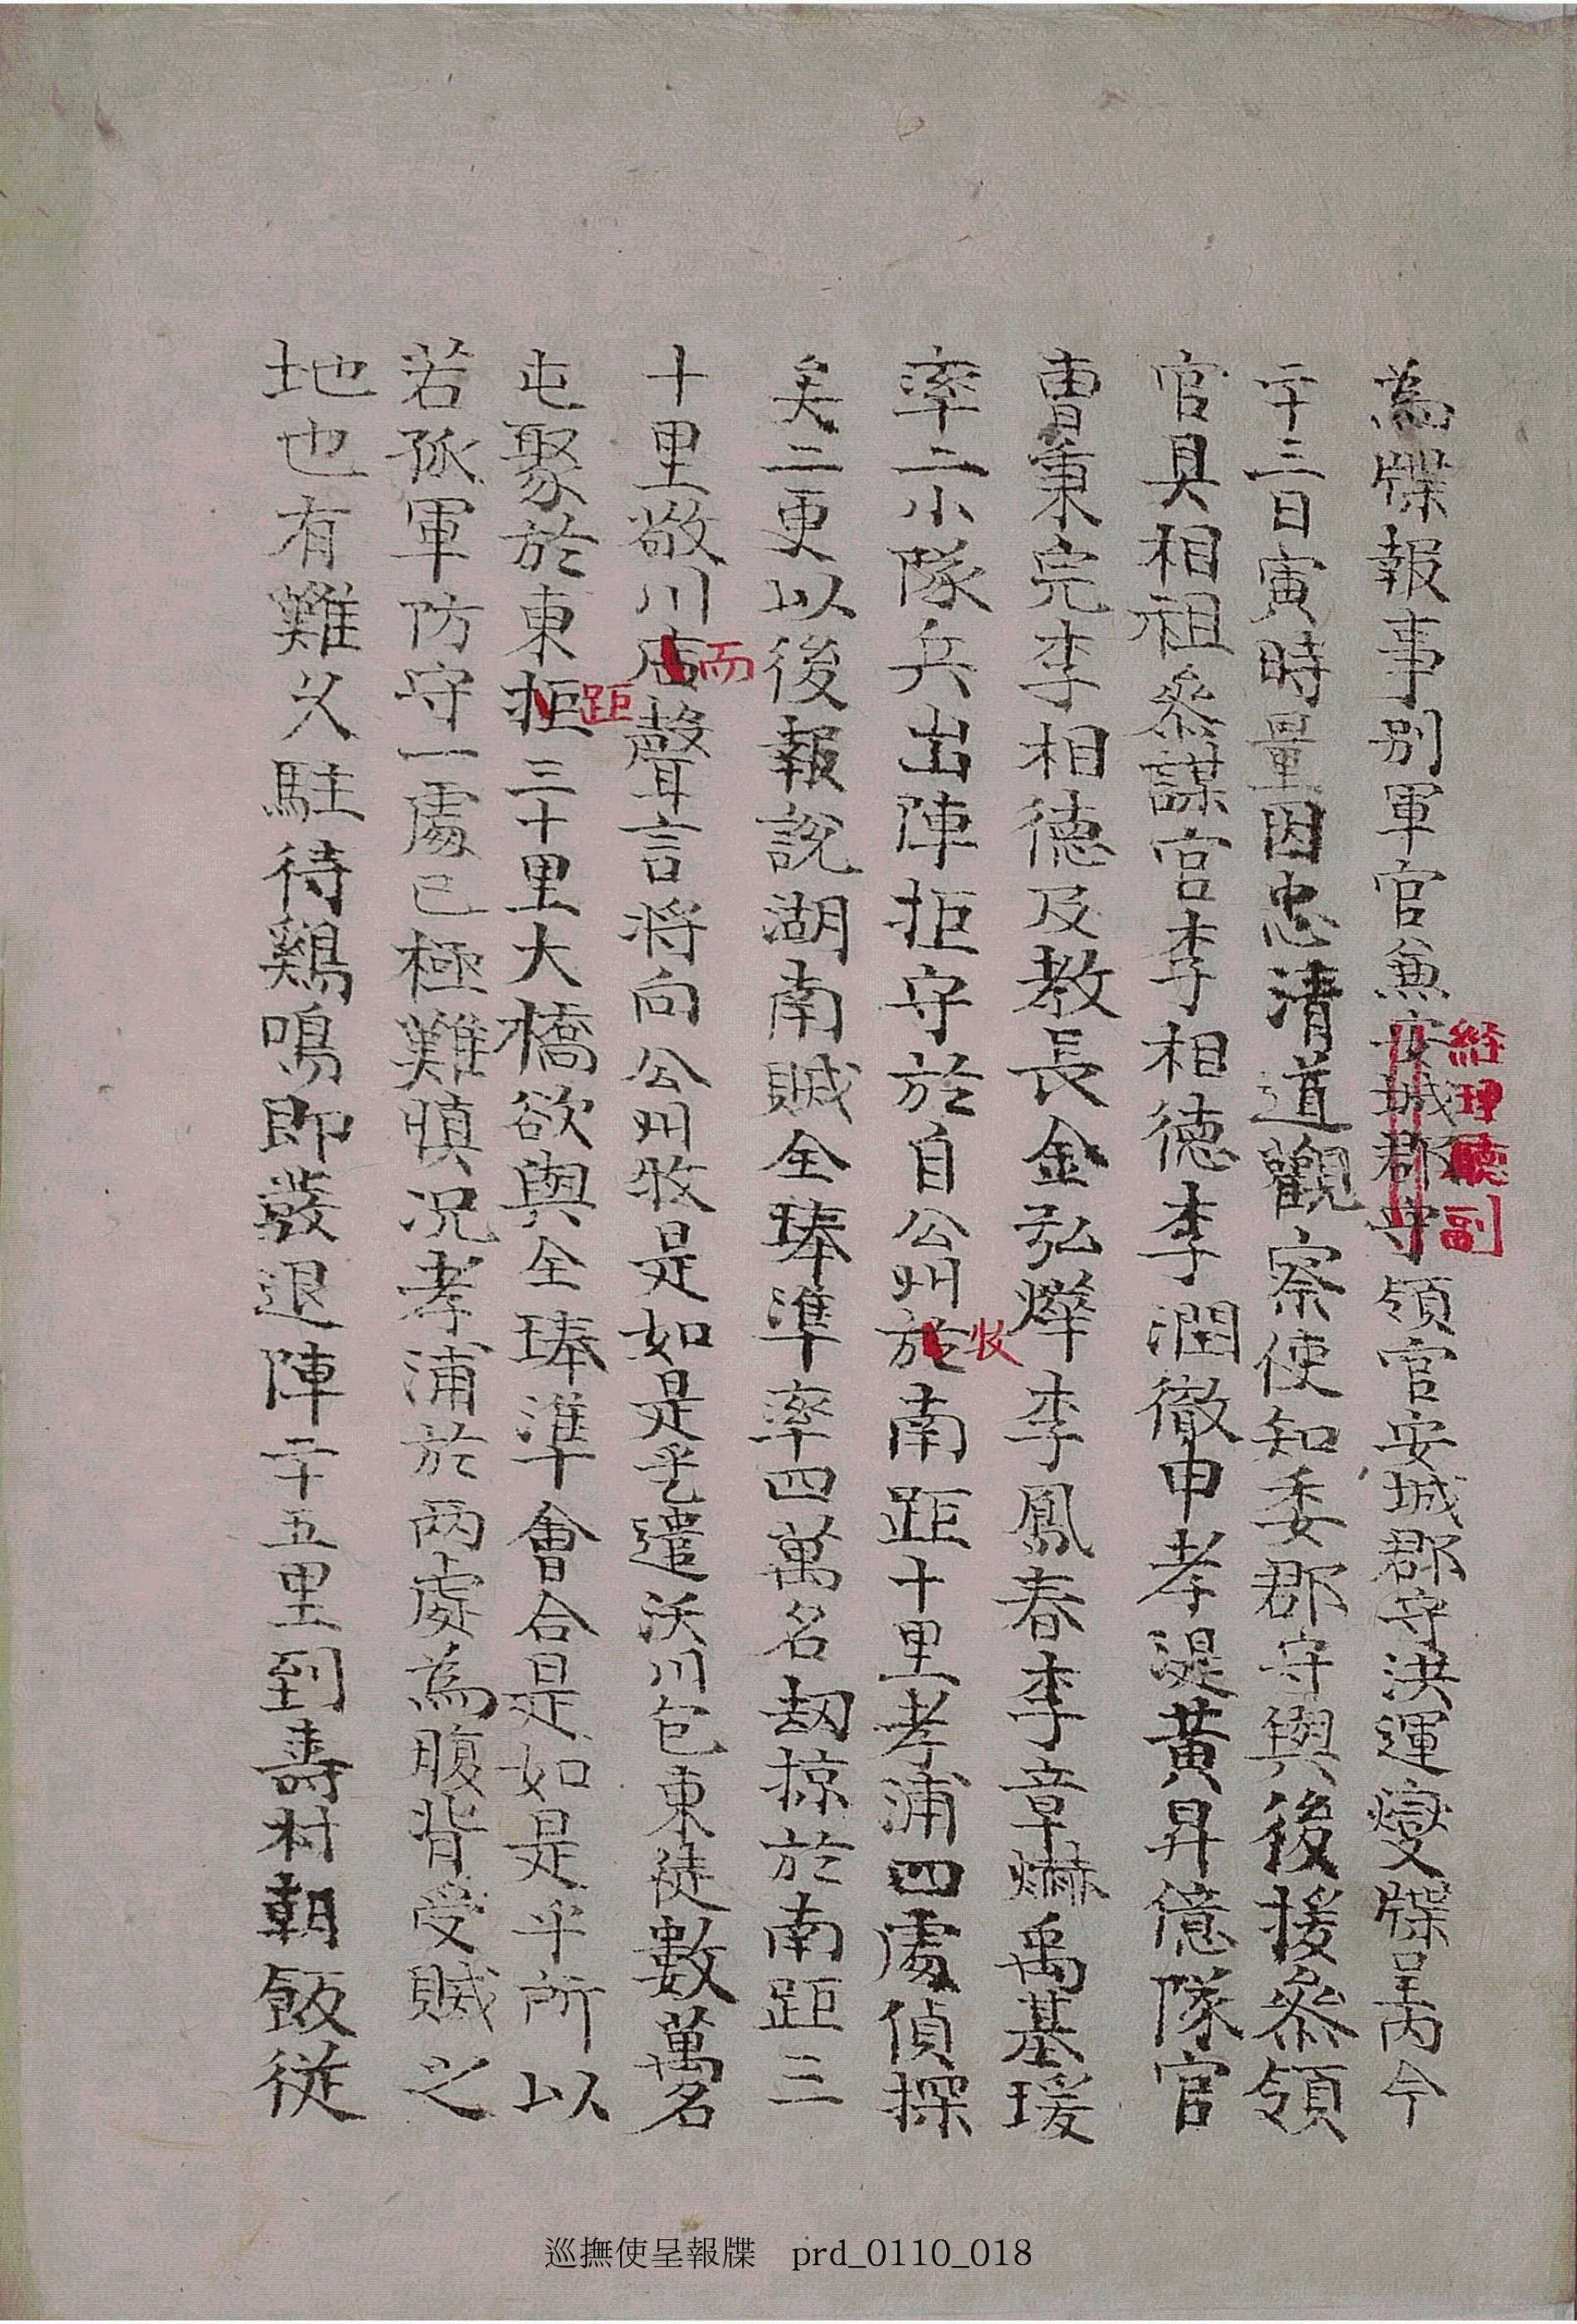 為牒報事別軍官兼安城郡守領官安城郡守洪運燮牒呈內今
經理廳副
二十三日寅時量因忠清道觀察使知委郡守與後援叅領
官具相祖叅謀官李相德李潤徹申孝湜黃昇億隊官
曺秉完李相德及教長金弘燁李鳳春李章爀禹基瑗
率二小隊兵出陣拒守於自公州於南距十里孝浦四處偵探
牧
矣二更以後報說湖南賊全琫準率四萬名刼掠於南距三
十里敬川店聲言將向公州牧是如是乎乧遣沃川包東徒數萬名
而
屯聚於東拒三十里大橋欲與全琫準會合是如是乎所以
距
若孤軍防守一處已極難慎况孝浦於兩處為腹背受賊之
地也有難久駐待鷄鳴即發退陣二十五里到壽村朝飯從
巡撫使呈報牒 prd_0110_018